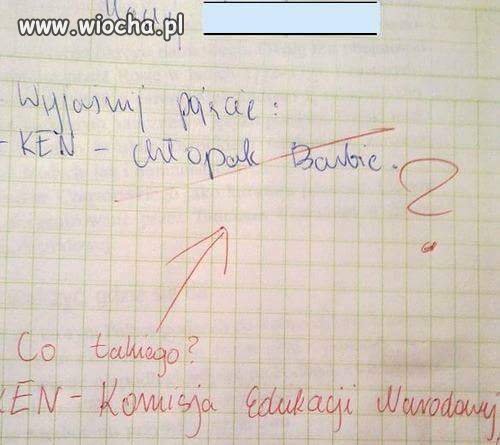 www.wiocha.pl
- Wyjaśnij pojęcie:
- KEN - chłopak Barbie.
?
Co takiego?
KEN - Komisja Edukacji Narodowej